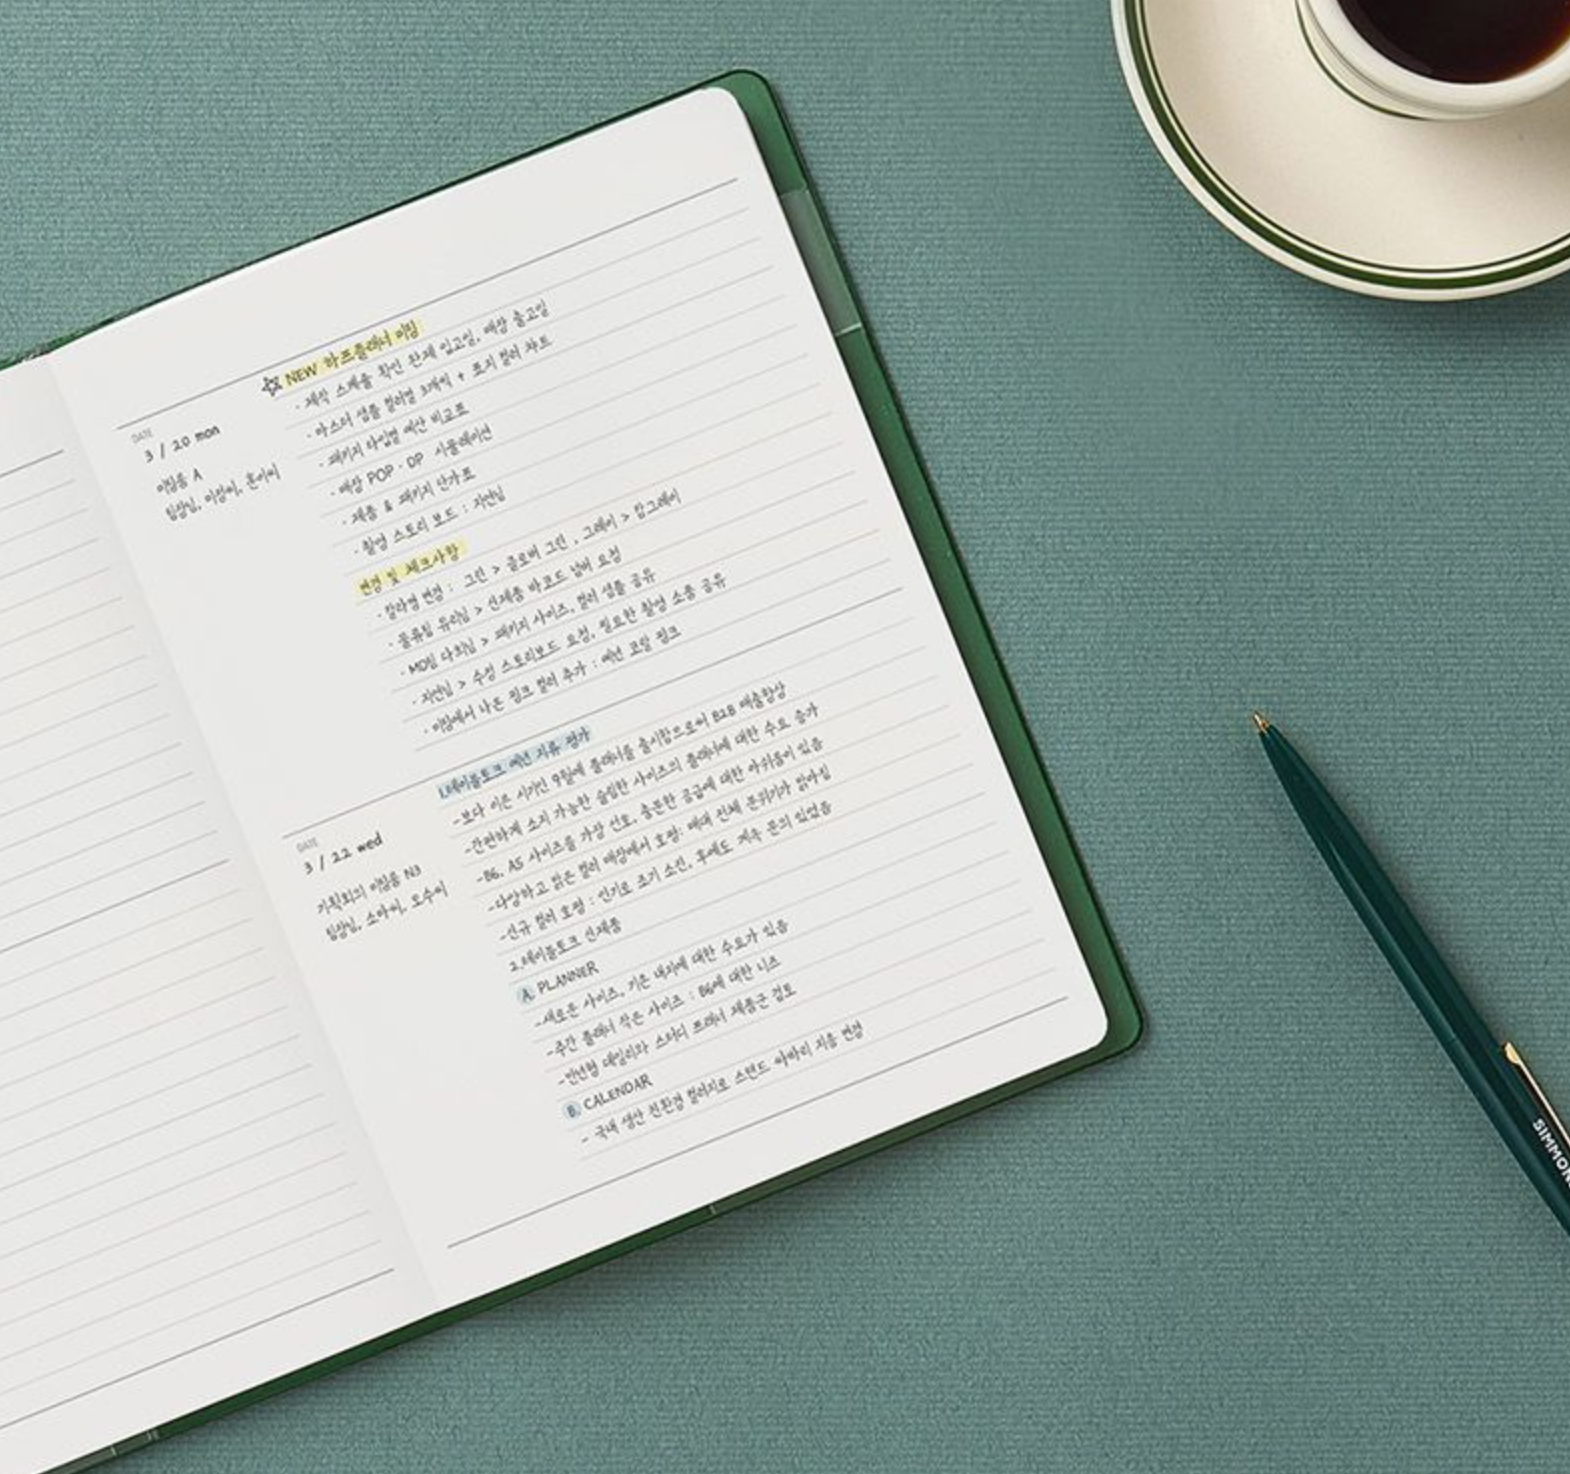 ☆ NEW 하프플래너 미팅
· 제작 스케줄 확인 완제 입고일, 매장 출고일
· 마스터 샘플 컬러별 3개씩 + 표지 컬러 차트
· 패키지 타입별 예산 비교표
· 매장 POP · DP 시뮬레이션
· 제품 & 패키지 단가표
· 촬영 스토리 보드 : 지안님
변경 및 체크사항
· 컬러명 변경 : 그린 > 클로버 그린, 그레이 > 밤그레이
· 물류팀 유리님 > 신제품 바코드 넘버 요청
· MD팀 다희님 > 패키지 사이즈, 컬러 샘플 공유
· 지안님 > 수정 스토리보드 요청, 필요한 촬영 소품 공유
· 미팅에서 나온 핑크 컬러 추가 : 예년 코랄 핑크
DATE
3 / 20 mon
미팅룸 A
팀장님, 미정씨,
1.테이블토크 예년 지류 평가
-보다 이른 시기인 9월에 플래너를 출시함으로써 B2B 매출향상
-간편하게 소지 가능한 슬림한 사이즈의 플래너에 대한 수요 증가
-B6, A5 사이즈를 가장 선호, 충분한 공급에 대한 아쉬움이 있음
-다양하고 밝은 컬러 매장에서 호평: 매대 전체 분위기가 밝아짐
-신규 컬러 호평 : 인기로 조기 소진, 후에도 계속 문의 있었음
2.테이블토크 신제품
A. PLANNER
-새로운 사이즈, 기존 내지에 대한 수요가 있음
-주간 플래너 작은 사이즈 : B6에 대한 니즈
-만년형 데일리와 스터디 플래너 제품군 검토
B. CALENDAR
- 국내 생산 친환경 컬러지로 스탠드 싸바리 지종 변경
DATE
3 / 22 wed
기획회의 미팅룸 N3
팀장님, 소아씨, 오수씨
SIMMON